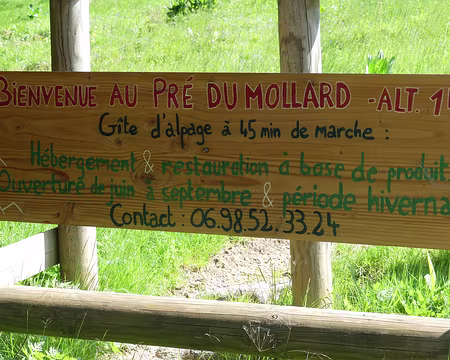 BIENVENUE AU PRÉ DU MOLLARD - ALT. 1
Gîte d'alpage à 45 min de marche :
Hébergement & restauration à base de produit
Ouverture de juin à septembre & période hiverna
Contact : 06.98.52.33.24